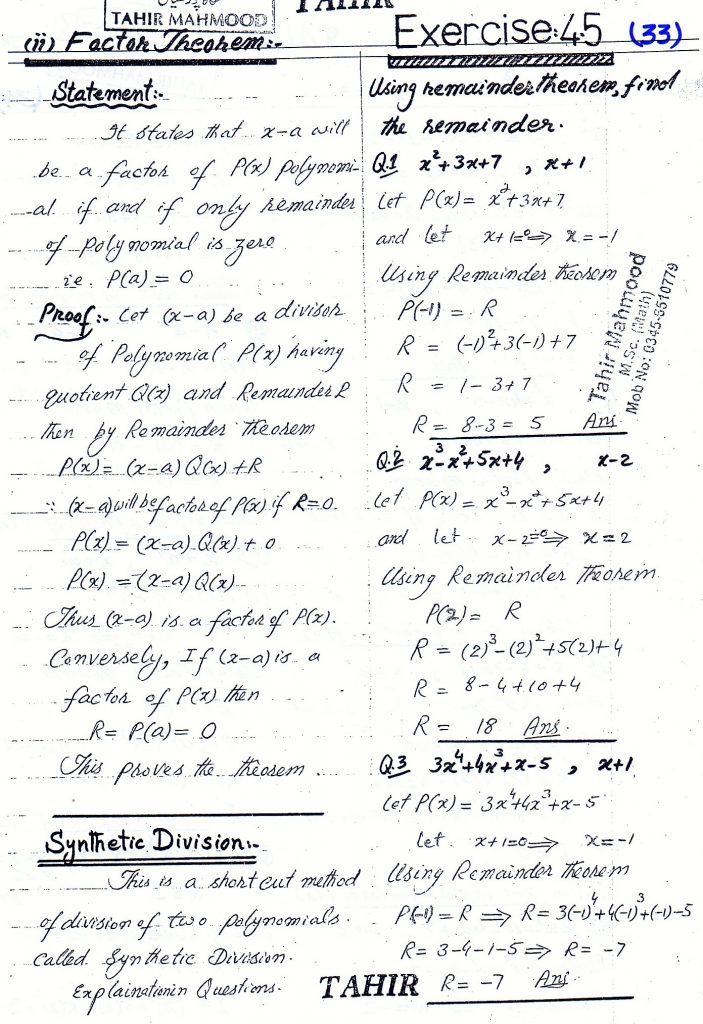 TAHIR MAHMOOD
TAHIR
(ii) Factor Theorem:-
Statement:-
It states that x-a will
be a factor of P(x) Polynomi-
-al if and if only remainder
of polynomial is zero
ie. P(a) = 0
Proof:- Let (x-a) be a divisor
of Polynomial P(x) having
quotient Q(x) and Remainder R
then by Remainder Theorem
P(x) = (x-a) Q(x) + R
∵ (x-a) will be factor of P(x) if R=0
P(x) = (x-a) Q(x) + 0
P(x) = (x-a) Q(x)
Thus (x-a) is a factor of P(x).
Conversely, If (x-a) is a
factor of P(x) then
R = P(a) = 0
This proves the theorem.
Synthetic Division:-
This is a short cut method
of division of two polynomials.
called Synthetic Division.
Explainationin Questions.
Exercise:4.5 (33)
Using remainder theorem, find
the remainder.
Q.1 x²+3x+7 , x+1
Let P(x) = x²+3x+7
and let x+1=0 ⇒ x = -1
Using Remainder theorem
P(-1) = R
R = (-1)²+3(-1)+7
R = 1-3+7
R = 8-3 = 5 Ans.
Q.2 x³-x²+5x+4 , x-2
Let P(x) = x³-x²+5x+4
and let x-2=0 ⇒ x=2
Using Remainder Theorem
P(2) = R
R = (2)³-(2)²+5(2)+4
R = 8-4+10+4
R = 18 Ans.
Q.3 3x⁴+4x³+x-5 , x+1
Let P(x) = 3x⁴+4x³+x-5
Let. x+1=0 ⇒ x=-1
Using Remainder Theorem
P(-1) = R ⇒ R = 3(-1)⁴+4(-1)³+(-1)-5
R = 3-4-1-5 ⇒ R = -7
R = -7 Ans.
Tahir Mahmood
M.Sc. (Math)
Mob No: 0345-6510779
TAHIR